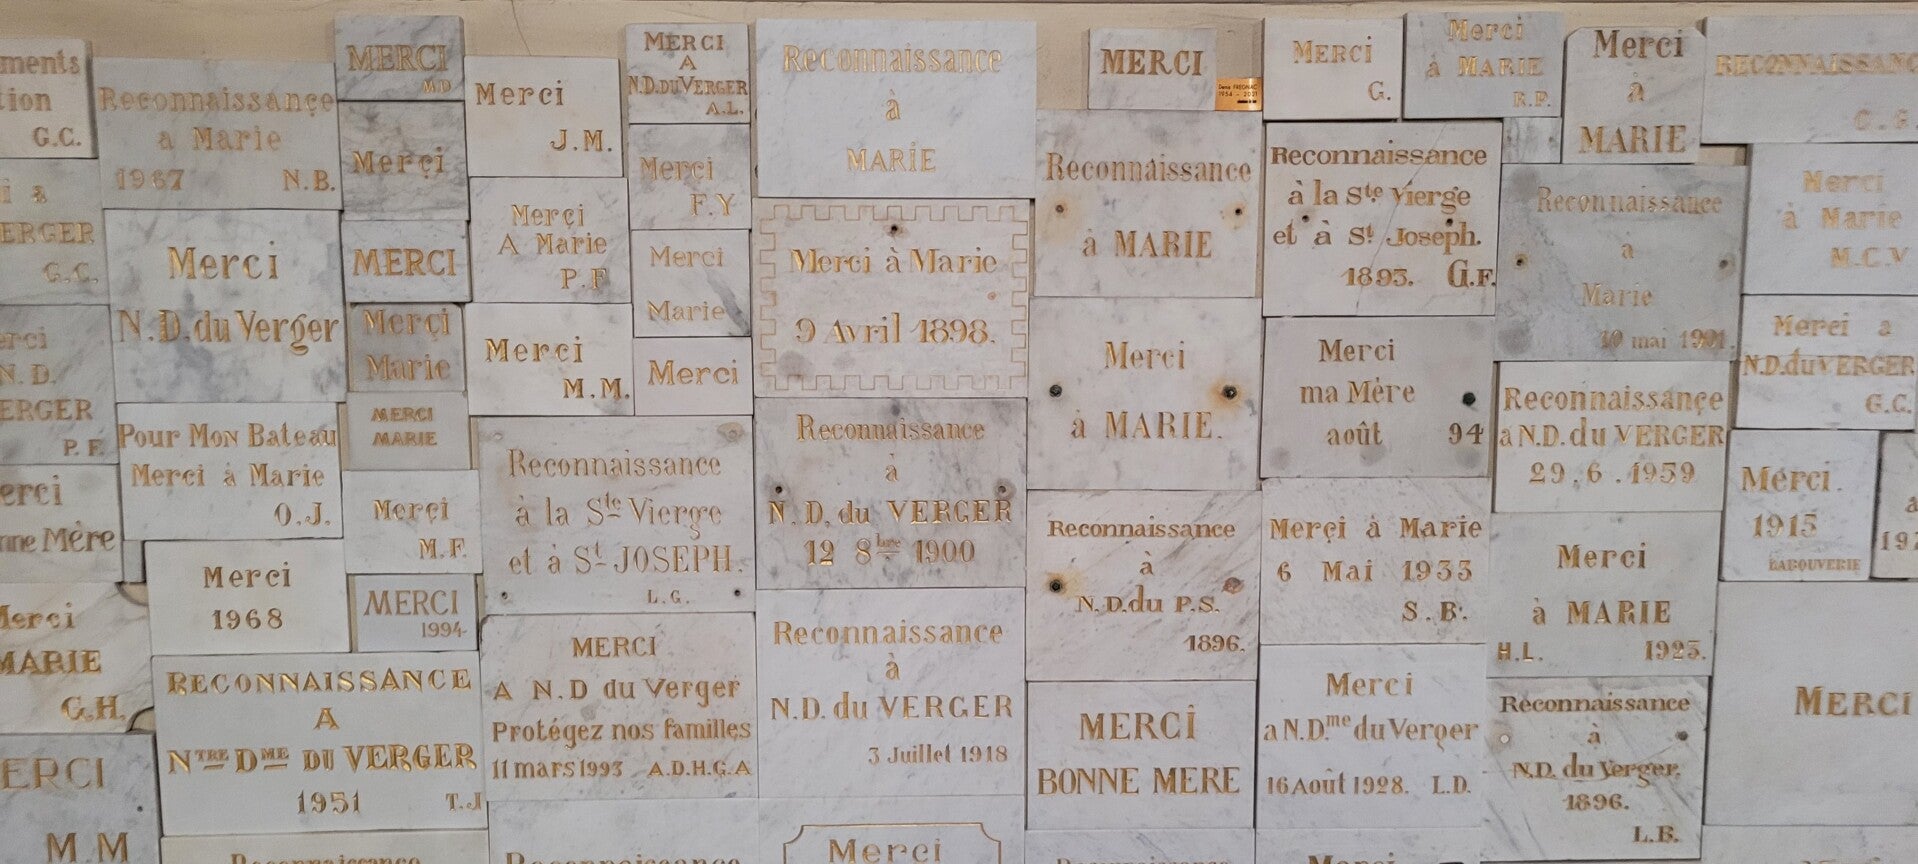 ments
tion
G.C.
Reconnaissançe
a Marie
1967 N.B.
MERCI
M/D
Merci
J.M.
MERCI
A
N.D.DU VERGER
A.L.
Reconnaissance
à
MARIE
MERCI
MERCI
G.
Merci
à MARIE
R.P.
Merci
à
MARIE
RECONNAISSANC
C.G.
i a
ERGER
G.C.
Merçi
Merci
F.Y
Reconnaissance
à MARIE
Reconnaissance
à la Ste Vierge
et à St Joseph.
1893. G.F.
Reconnaissance
a
Marie
10 mai 1901.
Merci
à Marie
M.C.V
Merci
N.D. du Verger
MERCI
Merçi
A Marie
P.F
Merci
Marie
Merci à Marie
9 Avril 1898.
erci
N.D.
ERGER
P.F.
Merçi
Marie
Merci
M.M.
Merci
Merci
à MARIE.
Merci
ma Mère
août 94
Reconnaissançe
a N.D. du VERGER
29.6.1959
Merci a
N.D.du VERGER
G.C.
Pour Mon Bateau
Merci à Marie
O.J.
MERCI
MARIE
Reconnaissance
à la Ste Vierge
et à St JOSEPH.
L.G.
Reconnaissance
à
N.D. du VERGER
12 8bre 1900
Merci.
1915
LABOUVERIE
erci
nne Mère
Merçi
M.F.
Reconnaissance
à
N.D.du P.S.
1896.
Merçi à Marie
6 Mai 1933
S.B.
Merci
à MARIE
H.L. 1923.
Merci
1968
MERCI
1994
Merci
MARIE
G.H.
RECONNAISSANCE
A
NTRE DME DU VERGER
1951 T.J
MERCI
A N.D du Verger
Protégez nos familles
11 mars 1993 A.D.H.G.A
Reconnaissance
à
N.D. du VERGER
3 Juillet 1918
MERCI
BONNE MERE
Merci
a N.D.me du Verger
16 Août 1928. L.D.
Reconnaissance
à
N.D. du Verger.
1896.
L.B.
MERCI
ERCI
M.M
Reconnaissance
Reconnaissance
Merci
Merci